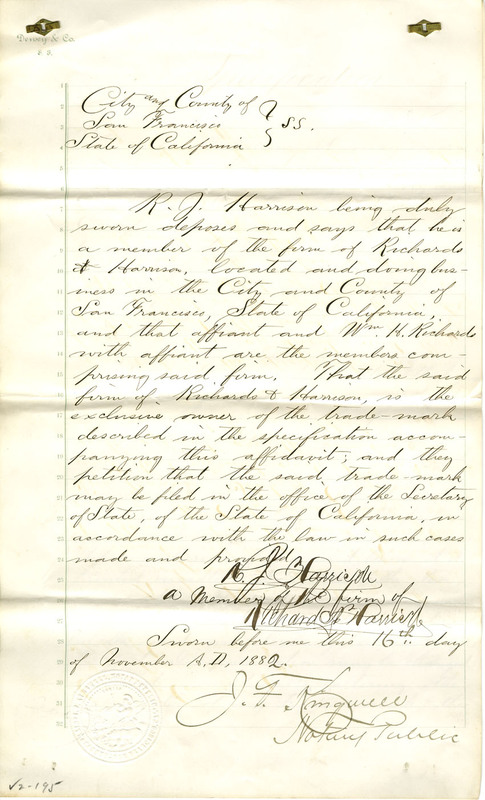 Dewey & Co.
City and County of
San Francisco } ss.
State of California
R. J. Harrison being duly
sworn deposes and says that he is
a member of the firm of Richards
& Harrison, located and doing bus-
iness in the City and County of
San Francisco, State of California,
and that affiant and Wm. H. Richards
with affiant are the members com-
prising said firm. That the said
firm of Richards & Harrison, is the
exclusive owner of the trade-mark
described in the specification accom-
panying this affidavit; and they
petition that the said trade-mark
may be filed in the office of the Secretary
of State, of the State of California, in
accordance with the law in such cases
made and provided.
R J Harrison
a Member of the firm of
Richards & Harrison
Sworn before me this 16th day
of November A.D. 1882.
J. F. Kingwell
Notary Public
√2-195